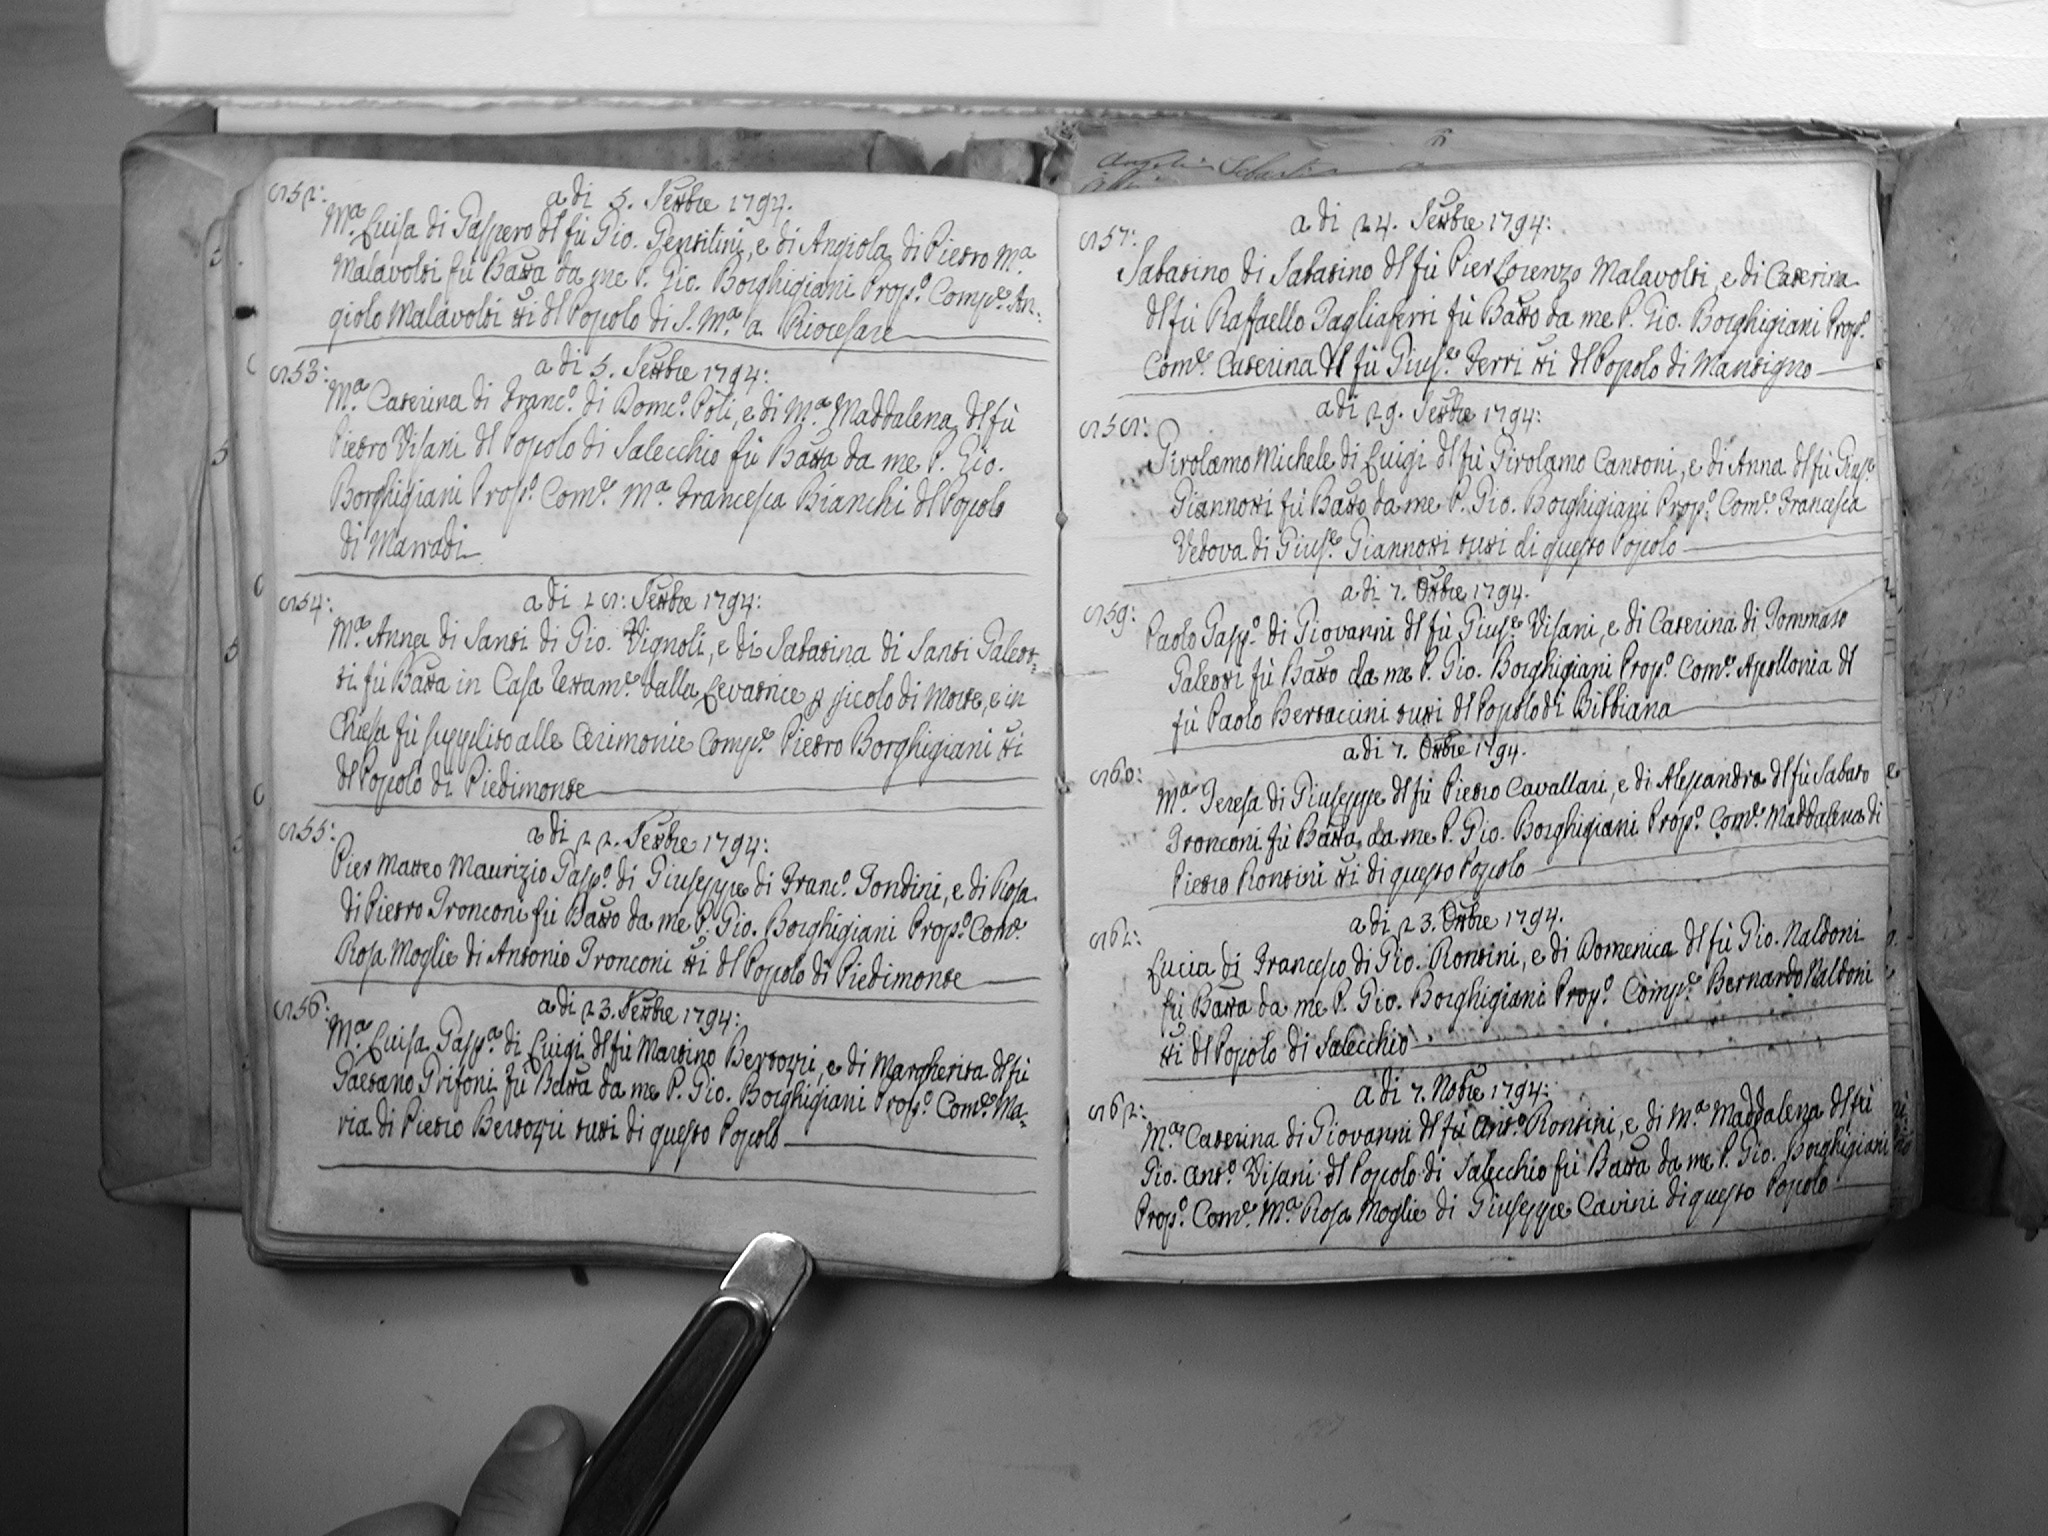 852: a di 5. Settbre 1794.
Mª. Luisa di Gaspero dl fù Gio. Gentilini, e di Angiola di Pietro Mª
Malavolti fù Batta da me P. Gio. Borghigiani Propº. Compe. An=
giolo Malavolti tti dl Popolo di S. Mª. a Riocesare
853: a di 5. Settbre 1794:
Mª. Caterina di Francº. di Domcº. Poli, e di Mª. Maddalena dl fù
Pietro Visani dl Popolo di Salecchio fù Batta da me P. Gio.
Borghigiani Propº. Come. Mª. Francesca Bianchi dl Popolo
di Marradi
854: a di 18: Settbre 1794:
Mª. Anna di Santi di Gio. Vignoli, e di Sabatina di Santi Galeot=
ti fù Batta in Casa Tettame. dalla Levatrice p picolo di Morte, e in
Chiesa fù supplito alle Cerimonie Compe. Pietro Borghigiani tti
dl Popolo di Piedimonte
855: a di 22. Settbre 1794:
Pier Matteo Maurizio Gaspº. di Giuseppe di Francº. Fondini, e di Rosa
di Pietro Tronconi fù Batto da me P. Gio. Borghigiani Propº. Come.
Rosa Moglie di Antonio Tronconi tti dl Popolo di Piedimonte
856: a di 23. Settbre 1794:
Mª. Luisa Gaspª. di Luigi dl fù Martino Bertozzi, e di Margherita dl fù
Gaetano Grifoni fù Batta da me P. Gio. Borghigiani Propº. Come. Ma=
ria di Pietro Bertozzi tutti di questo Popolo
857: a di 24. Settbre 1794:
Sabatino di Sabatino dl fù Pier Lorenzo Malavolti, e di Caterina
dl fù Raffaello Tagliaferri fù Batto da me P. Gio. Borghigiani Propº.
Come. Caterina dl fù Giuse. Ferri tti dl Popolo di Mantigno
858: a di 29. Settbre 1794:
Girolamo Michele di Luigi dl fù Girolamo Cantoni, e di Anna dl fù Giuse.
Giannotti fù Batto da me P. Gio. Borghigiani Propº. Come. Francesca
Vedova di Giuse. Giannotti tutti di questo Popolo
859: a di 7. Ottbre 1794.
Paolo Gaspº. di Giovanni dl fù Giuse. Visani, e di Caterina di Tommaso
Galeotti fù Batto da me P. Gio. Borghigiani Propº. Come. Apollonia dl
fù Paolo Bertaccini tutti dl Popolo di Bibbiana
860: a di 7. Ottbre 1794.
Mª. Teresa di Giuseppe dl fù Pietro Cavallari, e di Alessandra dl fù Sabato
Tronconi fù Batta da me P. Gio. Borghigiani Propº. Come. Maddalena di
Pietro Rontini tti di questo Popolo
861: a di 23. Ottbre 1794.
Lucia di Francesco di Gio. Rontini, e di Domenica dl fù Gio. Naldoni
fù Batta da me P. Gio. Borghigiani Propº. Compe. Bernardo Naldoni
tti dl Popolo di Salecchio
862: a di 7. Nobre 1794:
Mª. Caterina di Giovanni dl fù Antº. Rontini, e di Mª Maddalena dl fù
Gio. Antº. Visani dl Popolo di Salecchio fù Batta da me P. Gio. Borghigiani
Propº. Come. Mª. Rosa Moglie di Giuseppe Cavini di questo Popolo